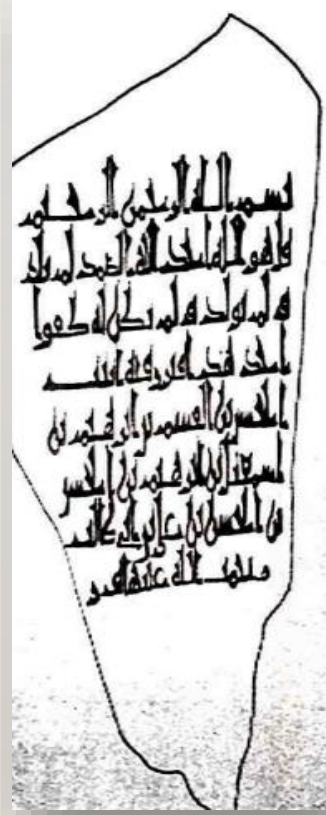 بسم الله الرحمن الرحيم
قل هو الله احد الله الصمد لم يلد
و لم يولد و لم يكن له كفوا
احد هذا قبر
الحسن بن القسم بن ابرهيم بن
اسمعيل بن ابرهيم بن الحسن
بن الحسن بن علي بن ابي طالب
الله